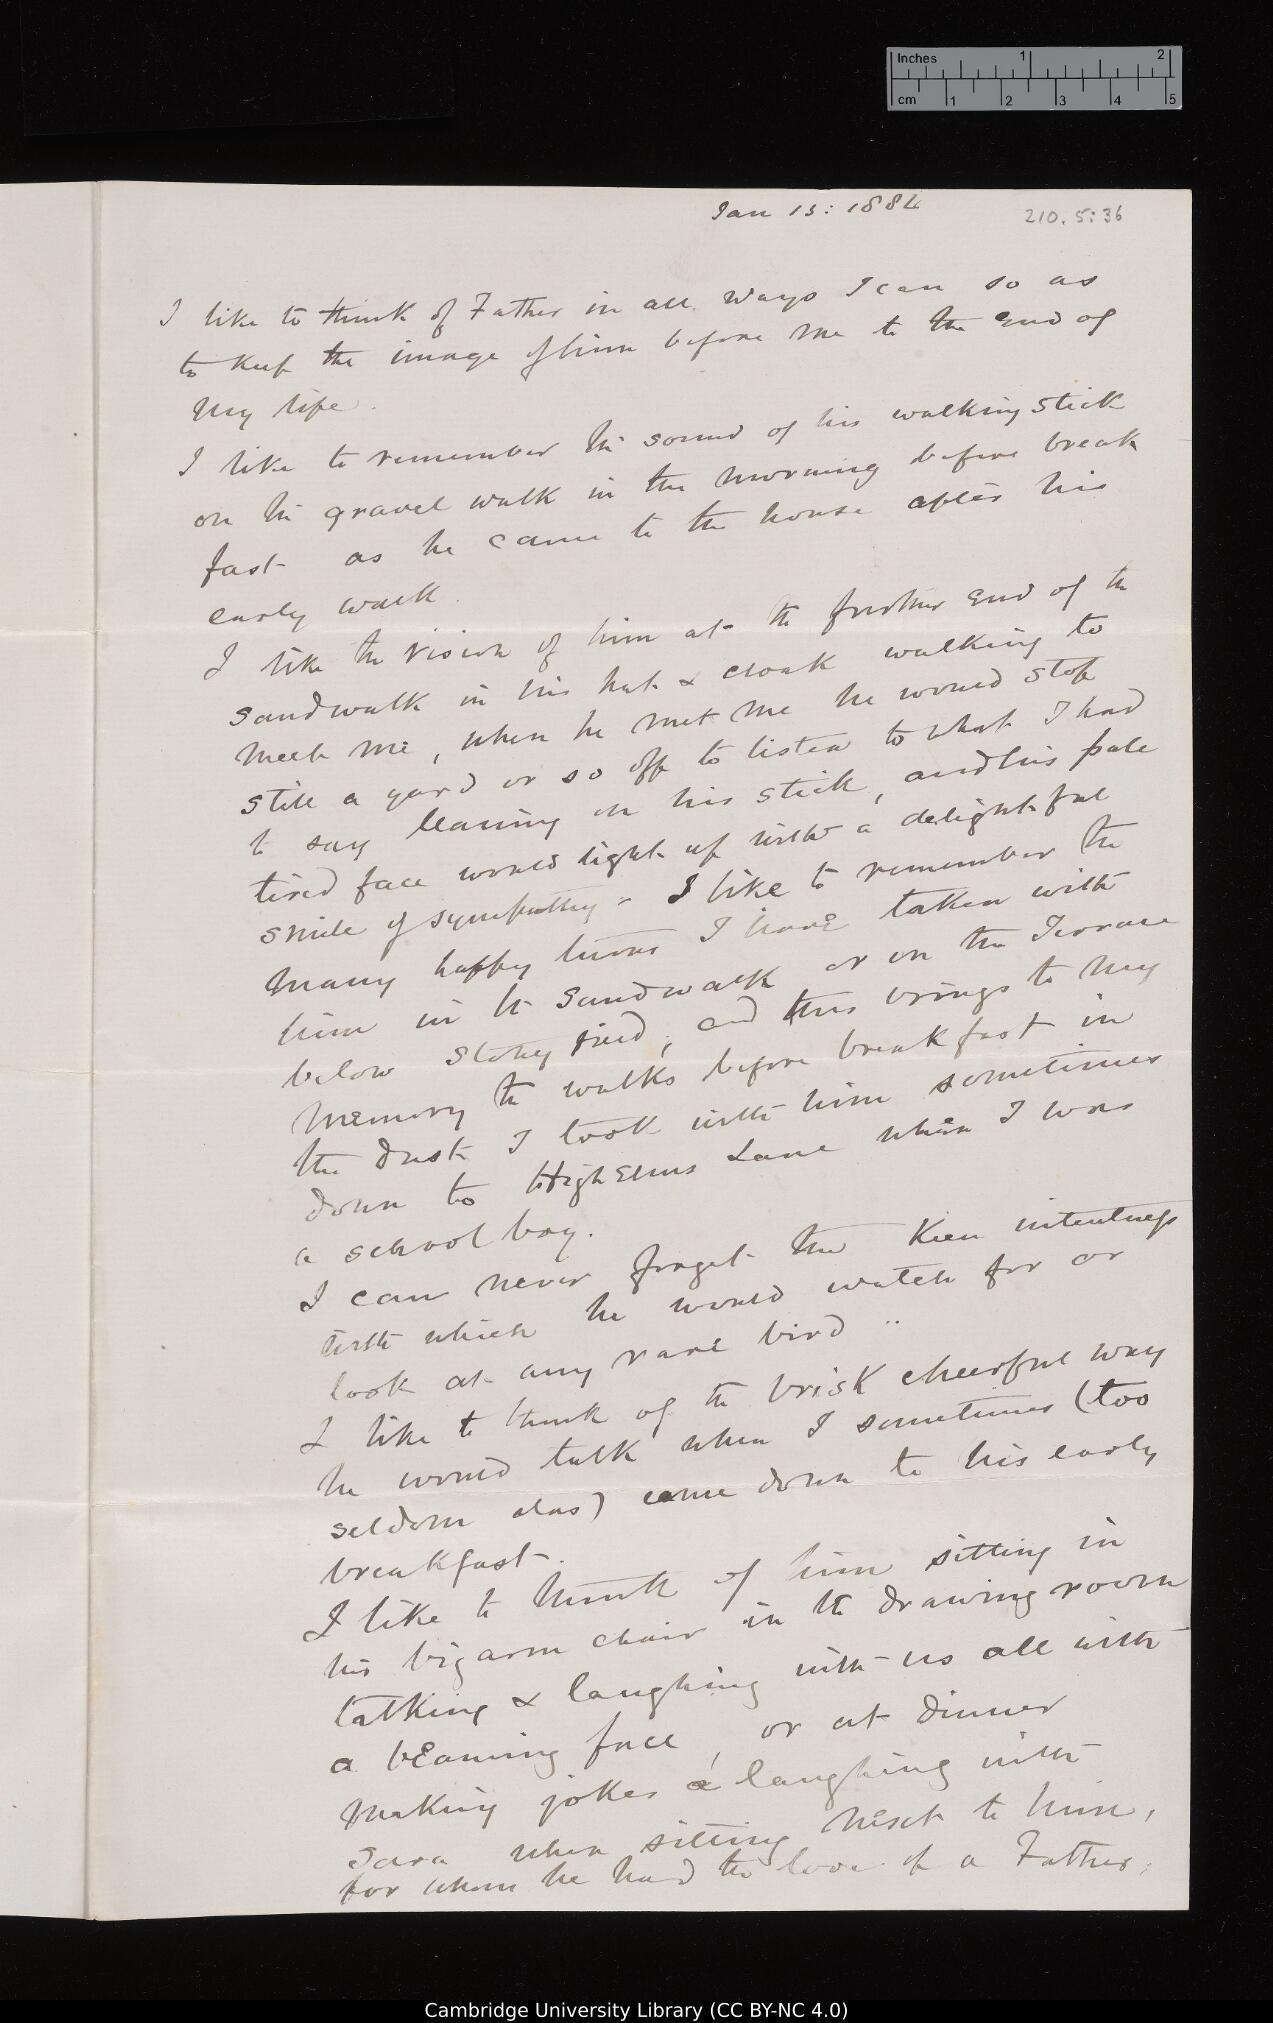 Inches 1 2
cm 1 2 3 4 5
Jan 13: 1884
210.5:36
I like to think of Father in all ways I can so as
to keep the image of him before me to the end of
my life.
I like to remember the sound of his walking stick
on the gravel walk in the morning before break
fast as he came to the house after his
early walk.
I like the vision of him at the further end of the
Sandwalk in his hat & cloak walking to
meet me, when he met me he would stop
still a yard or so off to listen to what I had
to say leaning on his stick, and his pale
tired face would light up with a delightful
smile of sympathy. I like to remember the
many happy turns I have taken with
him in the Sandwalk or on the Terrace
below Stoney Field, and this brings to my
memory the walks before breakfast in
the dusk I took with him sometimes
down to High Elms Lane when I was
a school boy.
I can never forget the keen intentness
with which he would watch for or
look at any rare bird
I like to think of the brisk cheerful way
he would talk when I sometimes (too
seldom alas) came down to his early
breakfast.
I like to think of him sitting in
his big arm chair in the drawing room
talking & laughing with us all with
a beaming face, or at dinner
making jokes & laughing with
Sara when sitting next to him,
for whom he had the love of a Father,
Cambridge University Library (CC BY-NC 4.0)